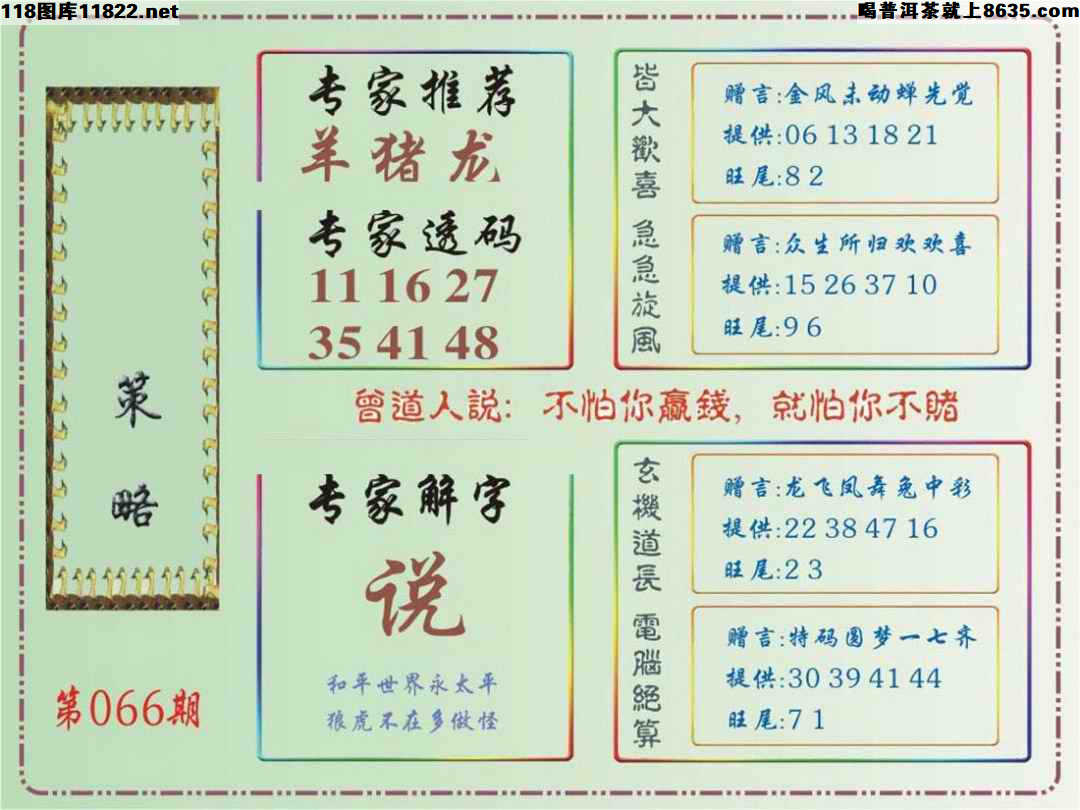 118图库11822.net
喝普洱茶就上8635.com
策略
第066期
专家推荐
羊猪龙
专家透码
11 16 27
35 41 48
皆大歡喜
赠言:金风未动蝉先觉
提供:06 13 18 21
旺尾:8 2
急急旋風
赠言:众生所归欢欢喜
提供:15 26 37 10
旺尾:9 6
曾道人説: 不怕你贏錢, 就怕你不賭
专家解字
说
和平世界永太平
狼虎不在多做怪
玄機道長
赠言:龙飞凤舞兔中彩
提供:22 38 47 16
旺尾:2 3
電腦絕算
赠言:特码圆梦一七齐
提供:30 39 41 44
旺尾:7 1